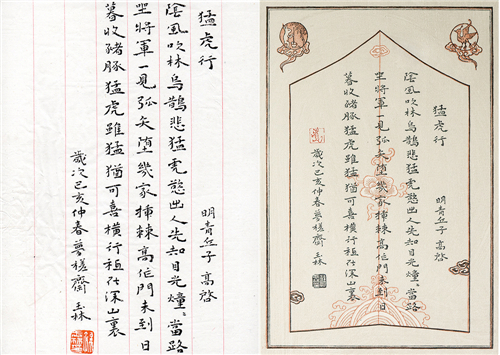 猛虎行
明青丘子 高啓
陰風吹林烏鵲悲猛虎慾出人先知目光當路
坐將軍一見弧矢墮幾家揷棘高作門未到日
暮收豬豚猛虎雖猛猶可喜橫行秪在深山裏
歲次己亥仲春夢槎齋 玉林
猛虎行
明青丘子 高啓
陰風吹林烏鵲悲猛虎慾出人先知目光當路
坐將軍一見弧矢墮幾家揷棘高作門未到日
暮收豬豚猛虎雖猛猶可喜橫行秪在深山裏
歲次己亥仲春夢槎齋 玉林